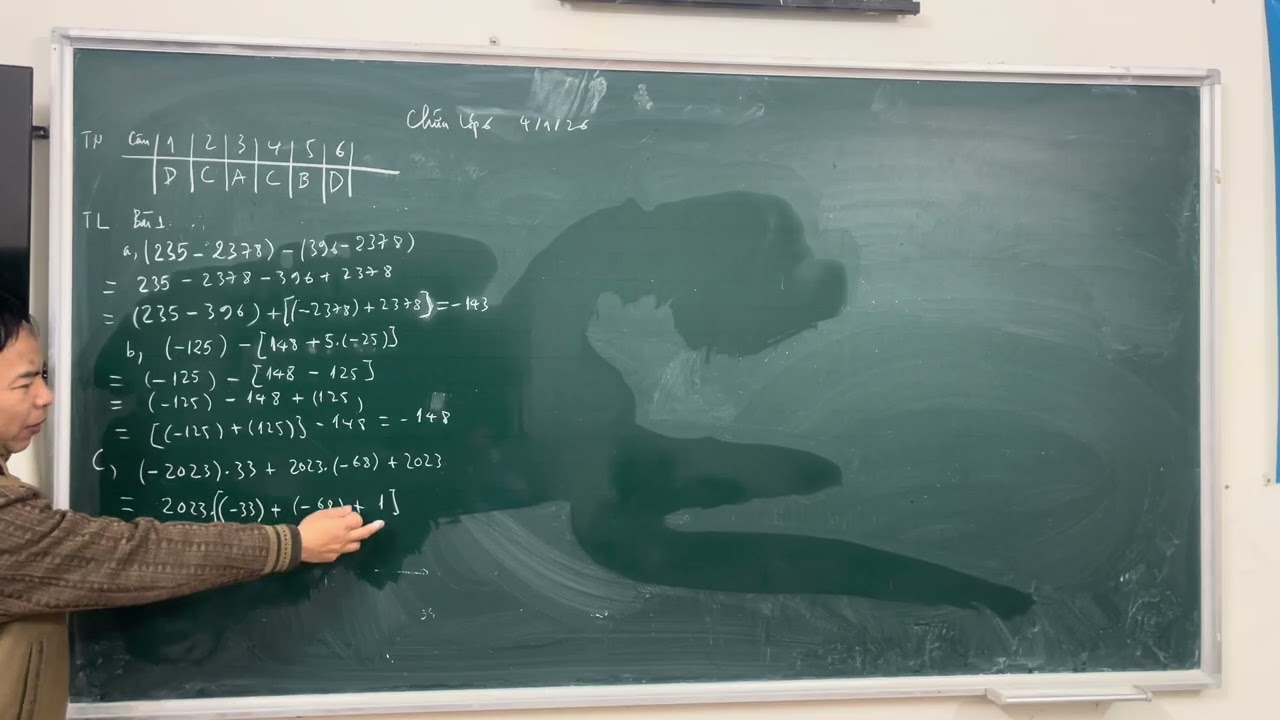 Chữa lớp 6 4/1/26
TN Câu 1 2 3 4 5 6
D C A C B D
TL Bài 1.
a, (235 - 2378) - (396 - 2378)
= 235 - 2378 - 396 + 2378
= (235 - 396) + [(-2378) + 2378] = -143
b, (-125) - [148 + 5.(-25)]
= (-125) - [148 - 125]
= (-125) - 148 + (125)
= [(-125) + (125)] - 148 = -148
C, (-2023).33 + 2023.(-68) + 2023
= 2023.[(-33) + (-68) + 1]